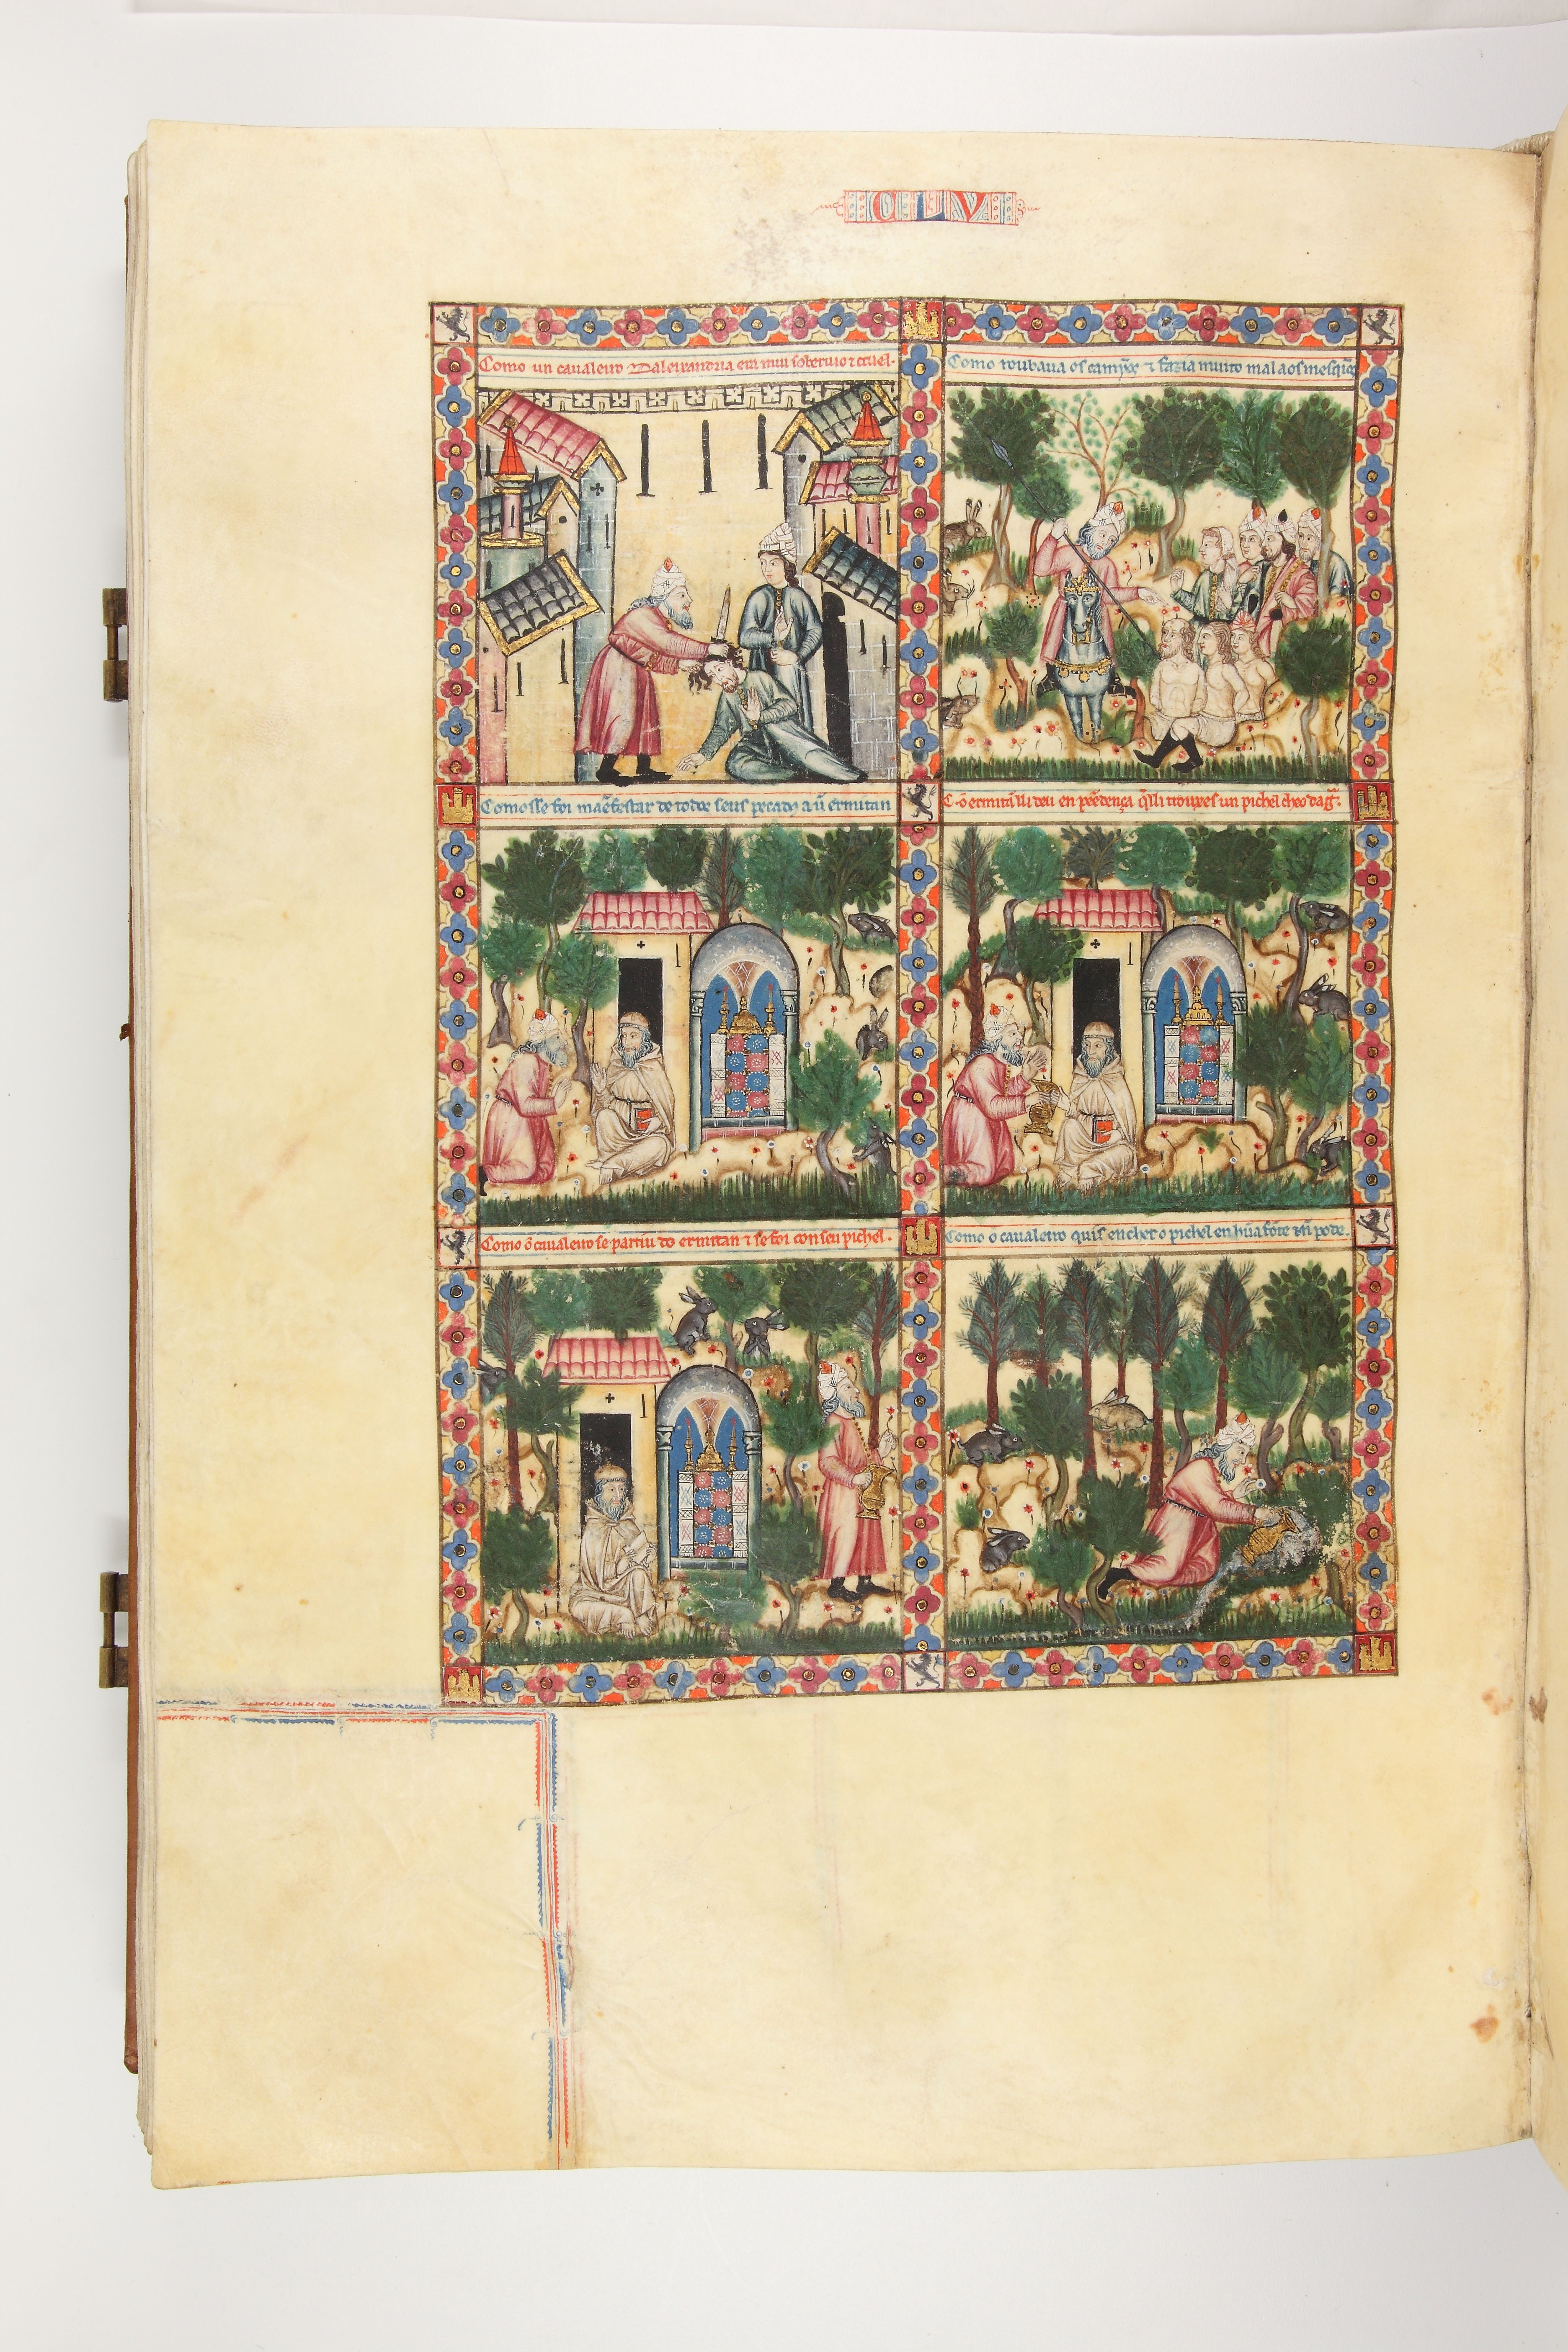 CLV
Como un caualeiro Daleixandria era mui soberuio ⁊ cruel.
Como roubaua os camỹos ⁊ fazia muito mal aos mesquỹos
Como sse foi mãefestar de todos seus pecados a ũ ermitan
C. o ermitã lli deu en pẽedença q̃ lli trouxes un pichel chẽo dag̃.
Como o caualeiro se partiu do ermitan ⁊ se foi con seu pichel.
Como o caualeiro quis encher o pichel en hũa fõte ⁊ nõ pode.